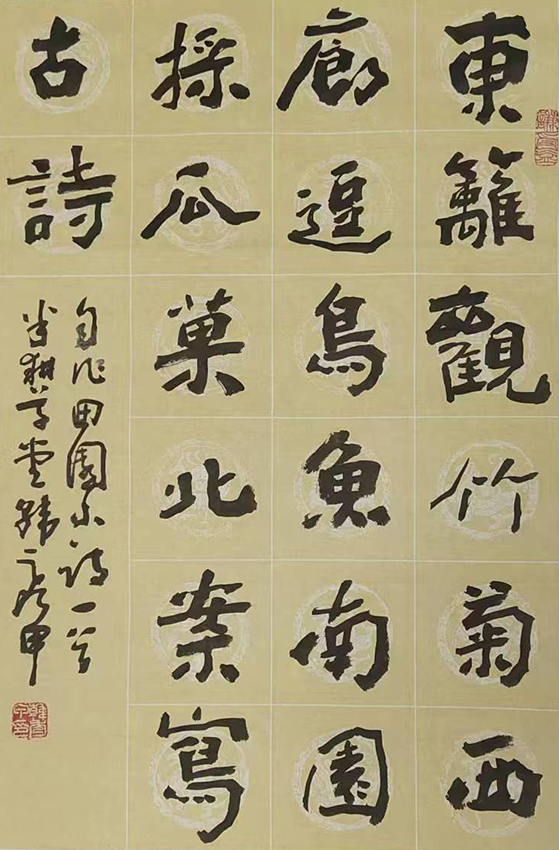 東籬觀竹菊西
廊逗鳥魚南園
採瓜菓北案寫
古詩
自作田園小詩一首
半耕草堂韓甲